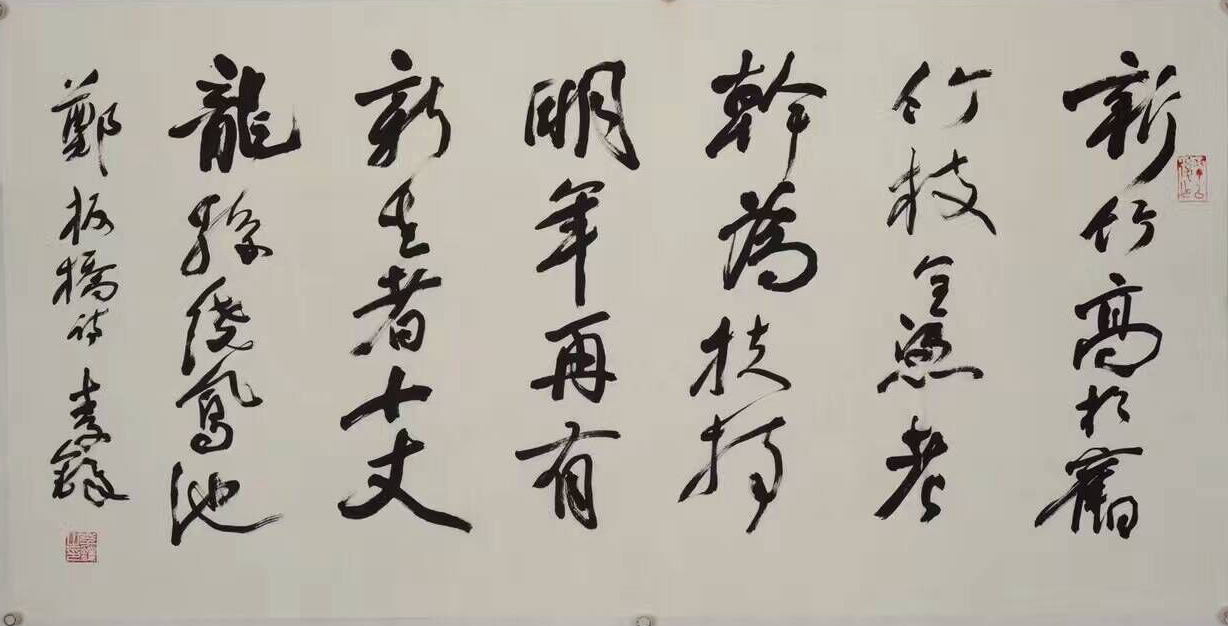 新竹高於舊
竹枝全憑老
幹為扶持
明年再有
新生者十丈
龍孫繞鳳池
鄭板橋詩